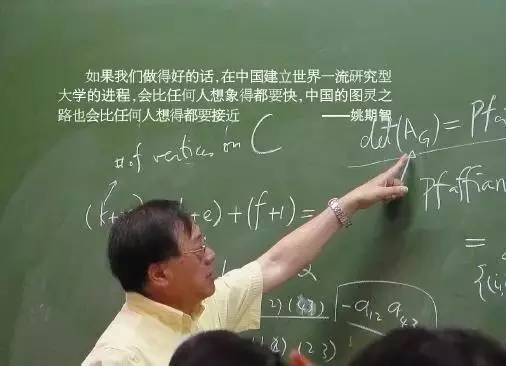 如果我们做得好的话，在中国建立世界一流研究型
大学的进程，会比任何人想象得都要快，中国的图灵之
路也会比任何人想得都要接近 ——姚期智
# of vertices in C
det(A_G) = Pfa
Pfaffian
+ e) + (f+1) =
=
2
-a_12 a_43
(2 3)